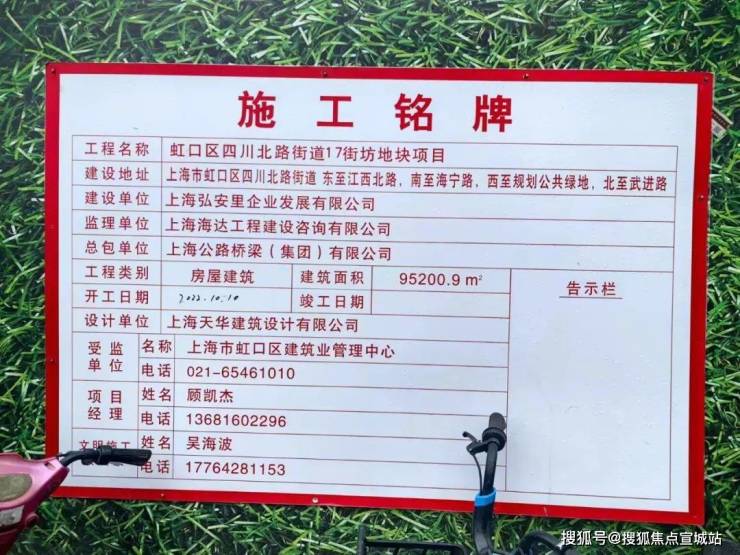 施工铭牌
工程名称 虹口区四川北路街道17街坊地块项目
建设地址 上海市虹口区四川北路街道 东至江西北路，南至海宁路，西至规划公共绿地，北至武进路
建设单位 上海弘安里企业发展有限公司
监理单位 上海海达工程建设咨询有限公司
总包单位 上海公路桥梁（集团）有限公司
工程类别 房屋建筑 建筑面积 95200.9 m²
告示栏
开工日期 2022.10.10 竣工日期
设计单位 上海天华建筑设计有限公司
受监单位 名称 上海市虹口区建筑业管理中心
电话 021-65461010
项目经理 姓名 顾凯杰
电话 13681602296
文明施工 姓名 吴海波
电话 17764281153
搜狐号@搜狐焦点宣城站